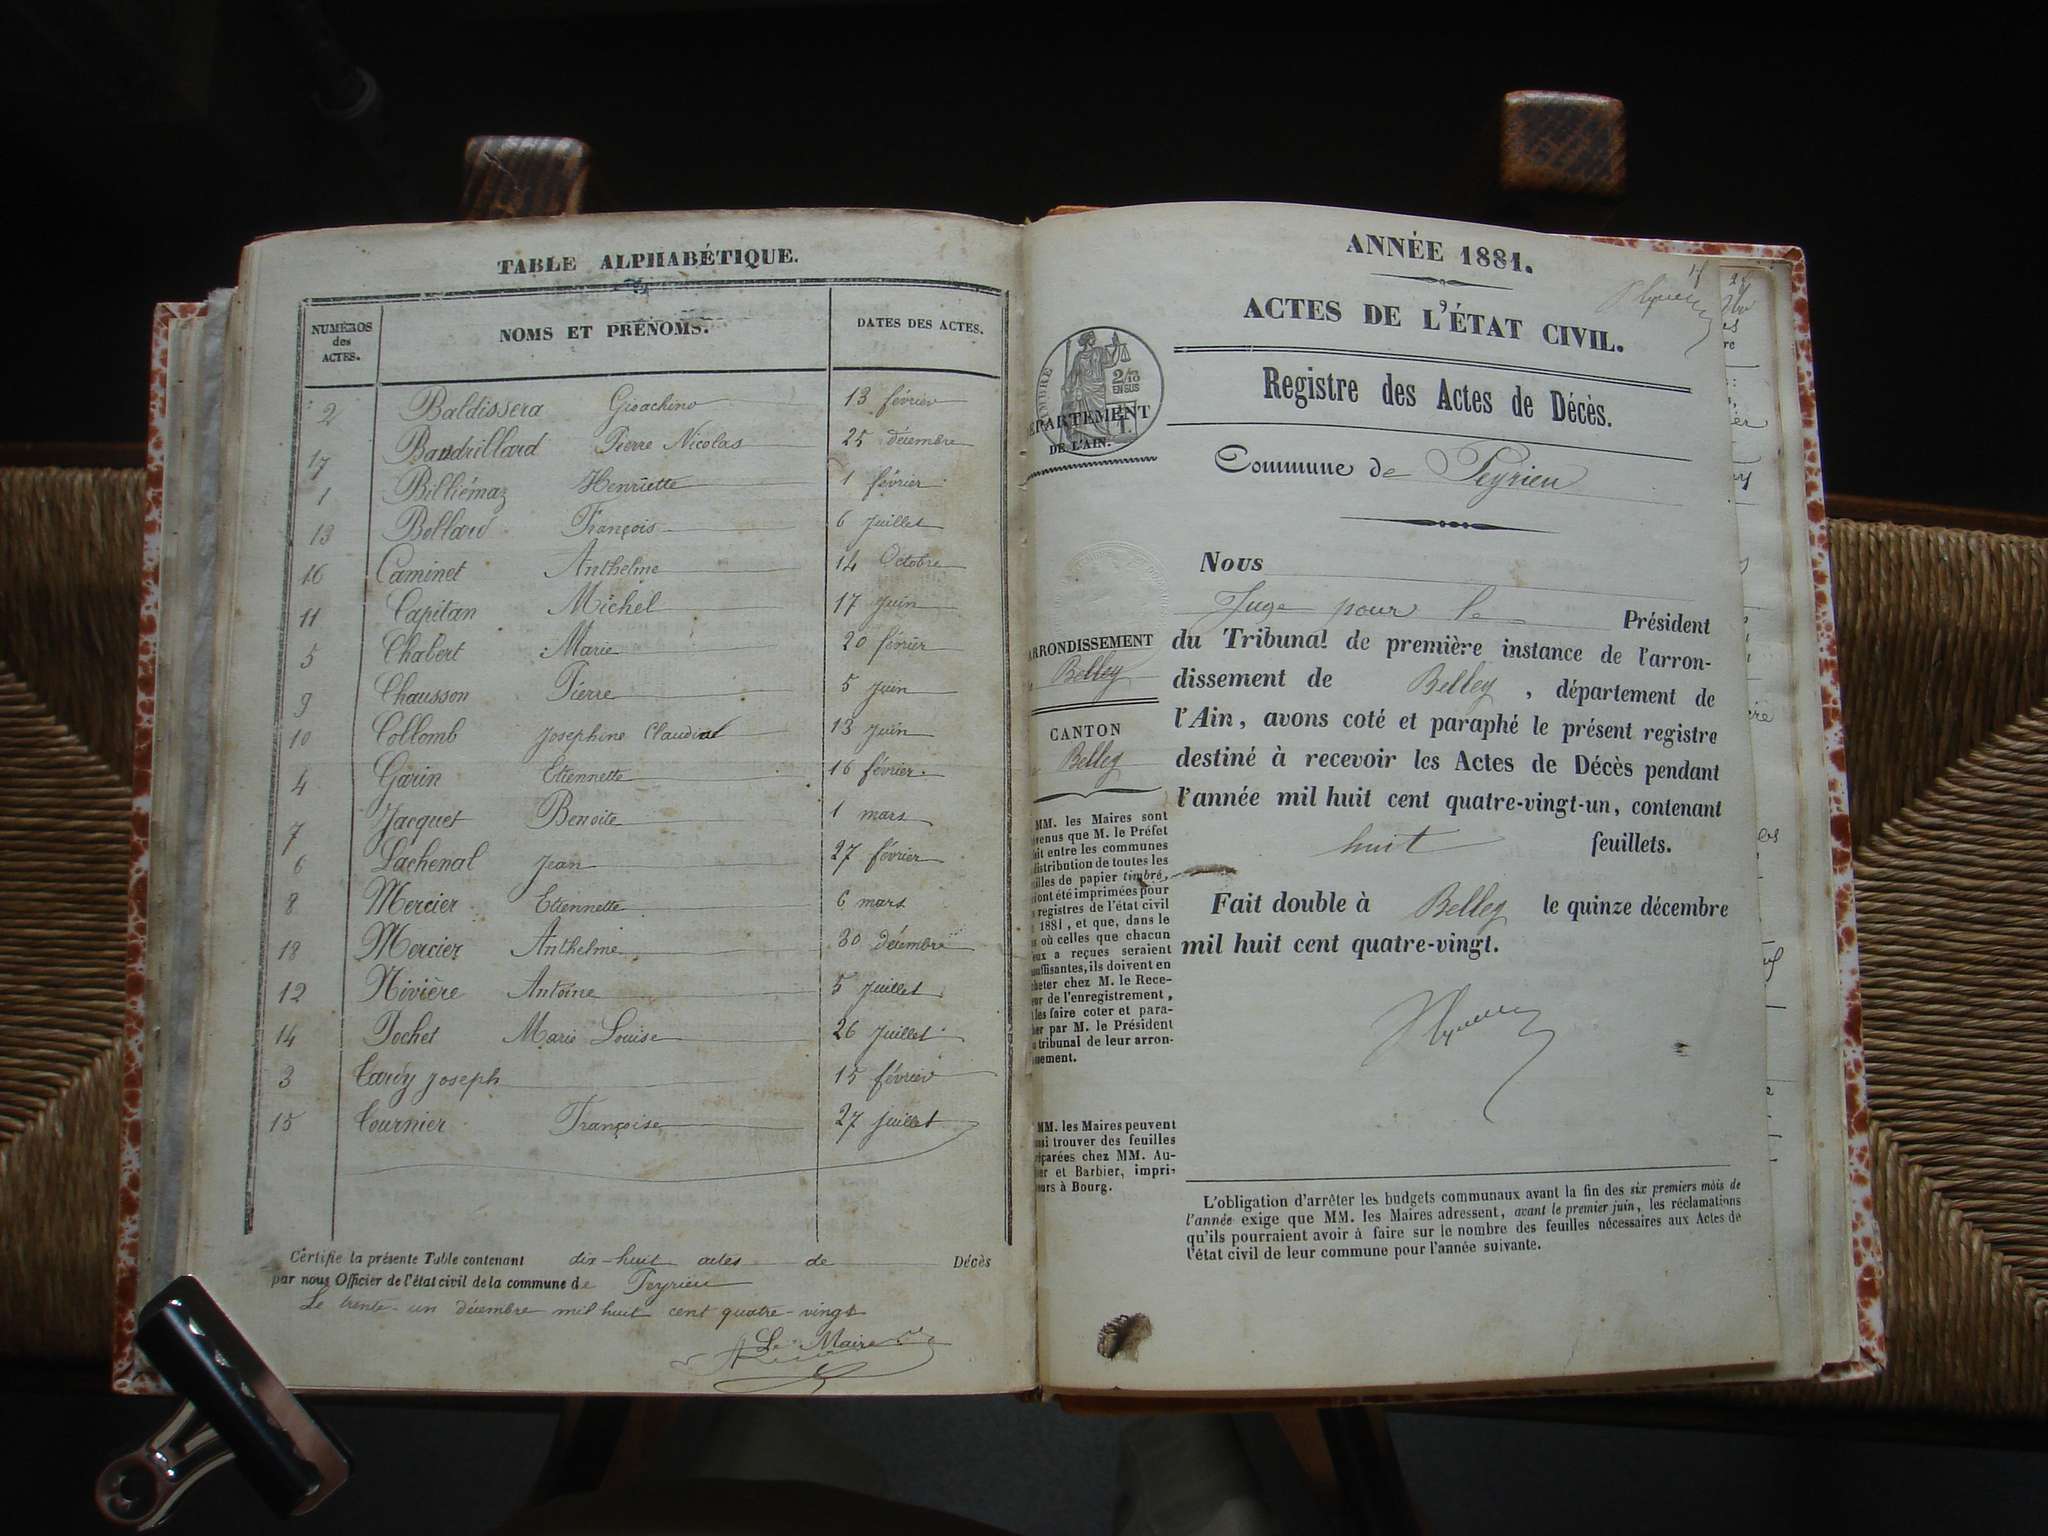 TABLE ALPHABÉTIQUE.
NUMÉROS des ACTES. NOMS ET PRÉNOMS. DATES DES ACTES.
2 Baldissera Gioachino 13 février
17 Baudrillard Pierre Nicolas 25 décembre
1 Billiémaz Henriette 1 février
13 Bollard François 6 juillet
16 Caminet Anthelme 14 Octobre
11 Capitan Michel 17 juin
5 Chabert Marie 20 février
9 Chausson Pierre 5 juin
10 Collomb Josephine Claudine 13 juin
4 Garin Etiennette 16 février
7 Jacquet Benoite 1 mars
6 Lachenal Jean 27 février
8 Mercier Etiennette 6 mars
18 Mercier Anthelme 30 décembre
12 Nivière Antoine 5 juillet
14 Pochet Marie Louise 26 juillet
3 Tardy Joseph 15 février
15 Tournier Françoise 27 juillet
Certifie la présente Table contenant dix-huit actes de Décès
par nous Officier de l'état civil de la commune de Peyrieu
Le trente-un décembre mil huit cent quatre-vingt
Le Maire
ANNÉE 1881.
ACTES DE L'ÉTAT CIVIL.
Registre des Actes de Décès.
Commune de Peyrieu
TIMBRE
2/10
EN SUS
DÉPARTEMENT
DE L'AIN.
ARRONDISSEMENT
Belley
CANTON
Belley
MM. les Maires sont
venus que M. le Préfet
fait entre les communes
distribution de toutes les
illes de papier timbré,
ont été imprimées pour
registres de l'état civil
1881, et que, dans le
où celles que chacun
eux a reçues seraient
uffisantes, ils doivent en
heter chez M. le Rece-
eur de l'enregistrement,
les faire coter et para-
her par M. le Président
tribunal de leur arron-
sement.
MM. les Maires peuvent
ssi trouver des feuilles
réparées chez MM. Au-
er et Barbier, impri-
eurs à Bourg.
Nous
Juge pour le Président
du Tribunal de première instance de l'arron-
dissement de Belley, département de
l'Ain, avons coté et paraphé le présent registre
destiné à recevoir les Actes de Décès pendant
l'année mil huit cent quatre-vingt-un, contenant
huit feuillets.
Fait double à Belley le quinze décembre
mil huit cent quatre-vingt.
L'obligation d'arrêter les budgets communaux avant la fin des six premiers mois de
l'année exige que MM. les Maires adressent, avant le premier juin, les réclamations
qu'ils pourraient avoir à faire sur le nombre des feuilles nécessaires aux Actes de
l'état civil de leur commune pour l'année suivante.